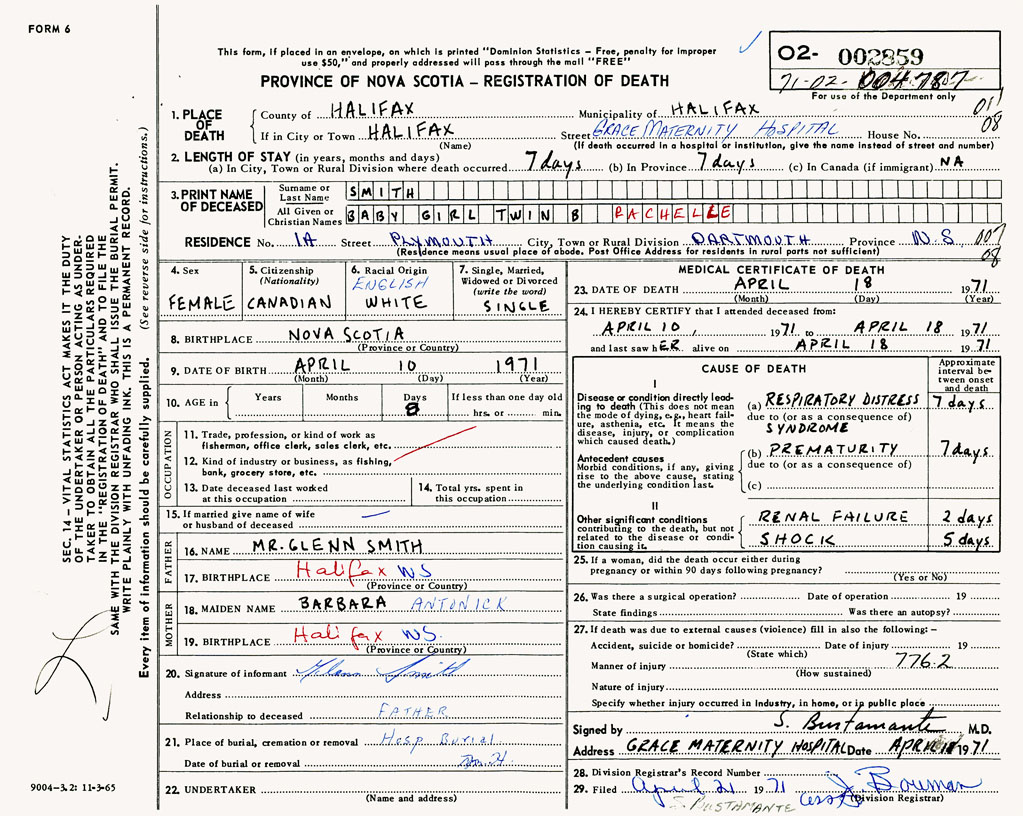 FORM 6
This form, if placed in an envelope, on which is printed "Dominion Statistics – Free, penalty for improper
use $50," and properly addressed will pass through the mail "FREE"
PROVINCE OF NOVA SCOTIA – REGISTRATION OF DEATH
02- 002859
71-02- 004787
For use of the Department only
SEC. 14 – VITAL STATISTICS ACT MAKES IT THE DUTY
OF THE UNDERTAKER OR PERSON ACTING AS UNDER-
TAKER TO OBTAIN ALL THE PARTICULARS REQUIRED
IN THE "REGISTRATION OF DEATH" AND TO FILE THE
SAME WITH THE DIVISION REGISTRAR WHO SHALL ISSUE THE BURIAL PERMIT.
WRITE PLAINLY WITH UNFADING INK. THIS IS A PERMANENT RECORD.
Every item of information should be carefully supplied. (See reverse side for instructions.)
1. PLACE OF DEATH
County of HALIFAX Municipality of HALIFAX
If in City or Town HALIFAX Street GRACE MATERNITY HOSPITAL House No. 08
(Name) (If death occurred in a hospital or institution, give the name instead of street and number)
2. LENGTH OF STAY (in years, months and days)
(a) In City, Town or Rural Division where death occurred 7 days (b) In Province 7 days (c) In Canada (if immigrant) NA
3. PRINT NAME OF DECEASED
Surname or Last Name SMITH
All Given or Christian Names BABY GIRL TWIN B RACHELLE
RESIDENCE No. 1A Street PLYMOUTH City, Town or Rural Division DARTMOUTH Province N.S. 007
(Residence means usual place of abode. Post Office Address for residents in rural parts not sufficient) 08
4. Sex
FEMALE
5. Citizenship (Nationality)
CANADIAN
6. Racial Origin
ENGLISH
WHITE
7. Single, Married, Widowed or Divorced (write the word)
SINGLE
8. BIRTHPLACE NOVA SCOTIA
(Province or Country)
9. DATE OF BIRTH APRIL 10 1971
(Month) (Day) (Year)
10. AGE in Years Months Days 8 If less than one day old
hrs. or min.
OCCUPATION
11. Trade, profession, or kind of work as
fisherman, office clerk, sales clerk, etc.
12. Kind of industry or business, as fishing,
bank, grocery store, etc.
13. Date deceased last worked
at this occupation
14. Total yrs. spent in
this occupation
15. If married give name of wife
or husband of deceased
FATHER
16. NAME MR. GLENN SMITH
17. BIRTHPLACE Halifax NS
(Province or Country)
MOTHER
18. MAIDEN NAME BARBARA ANTONICK
19. BIRTHPLACE Halifax NS.
(Province or Country)
20. Signature of informant Glenn Smith
Address
Relationship to deceased FATHER
21. Place of burial, cremation or removal Hosp Burial
Date of burial or removal
22. UNDERTAKER
(Name and address)
9004-3.2: 11-3-65
MEDICAL CERTIFICATE OF DEATH
23. DATE OF DEATH APRIL 18 1971
(Month) (Day) (Year)
24. I HEREBY CERTIFY that I attended deceased from:
APRIL 10, 1971 to APRIL 18 1971
and last saw hER alive on APRIL 18 1971
CAUSE OF DEATH
Approximate interval between onset and death
I
Disease or condition directly lead-
ing to death (This does not mean
the mode of dying, e.g., heart fail-
ure, asthenia, etc. It means the
disease, injury, or complication
which caused death.)
(a) RESPIRATORY DISTRESS 7 days
due to (or as a consequence of)
SYNDROME
Antecedent causes
Morbid conditions, if any, giving
rise to the above cause, stating
the underlying condition last.
(b) PREMATURITY 7 days
due to (or as a consequence of)
(c)
II
Other significant conditions
contributing to the death, but not
related to the disease or condi-
tion causing it.
RENAL FAILURE 2 days
SHOCK 5 days
25. If a woman, did the death occur either during
pregnancy or within 90 days following pregnancy?
(Yes or No)
26. Was there a surgical operation? Date of operation 19
State findings Was there an autopsy?
27. If death was due to external causes (violence) fill in also the following: –
Accident, suicide or homicide? Date of injury 19
(State which) 776.2
Manner of injury
(How sustained)
Nature of injury
Specify whether injury occurred in industry, in home, or in public place
Signed by S. Bustamante M.D.
Address GRACE MATERNITY HOSPITAL Date APRIL 1971
28. Division Registrar's Record Number
29. Filed April 21 1971 J. Bowman
S. BUSTAMANTE (Division Registrar)